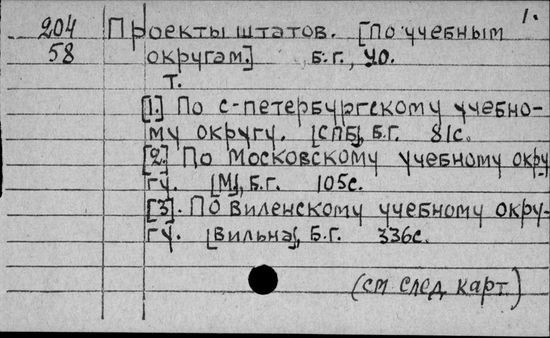 1.
204 Проекты штатов. [По учебным
58 округам.] Б.г., 40.
Т.
[1.] По С-петербургскому учебно-
му округу. [СПБ], Б.г. 81с.
[2.] По Московскому учебному окру-
гу. [М], Б.г. 105с.
[3]. По Виленскому учебному окру-
гу. [Вильна], Б.г. 336с.
(см след. карт)